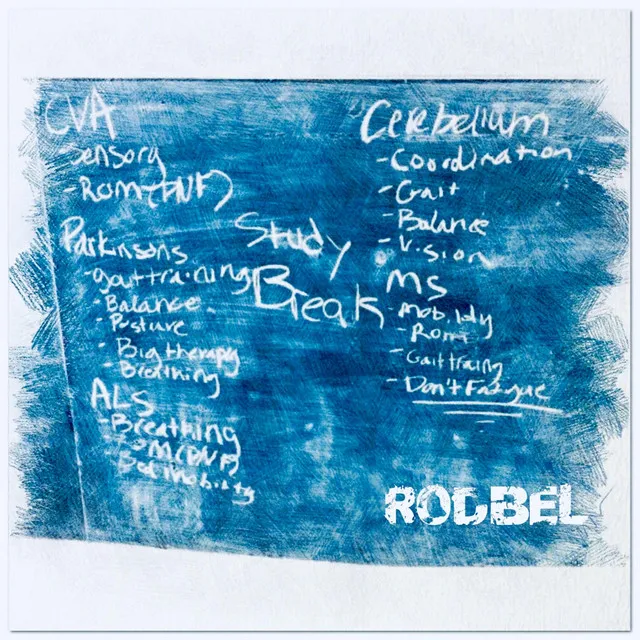 CVA
Sensory
- ROM (PNF)
Parkinsons
- gait training
- Balance
- Posture
- Big therapy
- Breathing
ALS
- Breathing
- ROM (PNF)
- Bed Mobility
Study
Break
Cerebellum
- Coordination
- Gait
- Balance
- Vision
MS
- Mobility
- Rom
- Gait traing
- Don't Fatigue
RODBEL